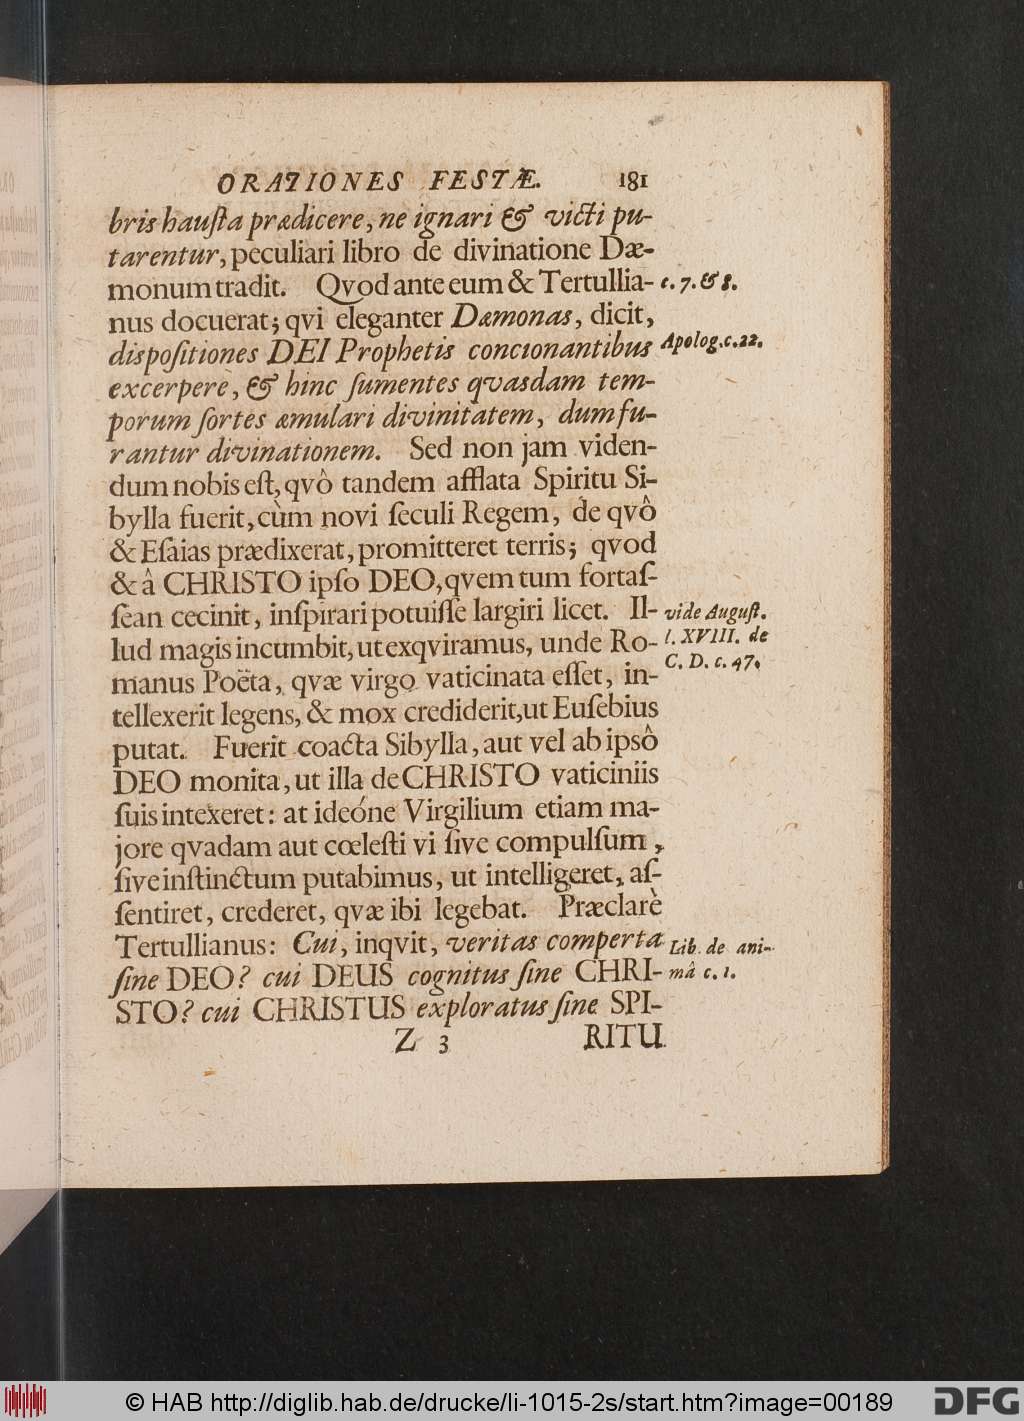 ORATIONES FESTÆ. 181
bris hauſta prædicere, ne ignari & victi pu-
tarentur, peculiari libro de divinatione Dæ-
monum tradit. Qvod ante eum & Tertullia- c. 7. & 8.
nus docuerat; qvi eleganter Dæmonas, dicit,
diſpoſitiones DEI Prophetis concionantibus Apolog. c. 22.
excerpere, & hinc ſumentes qvasdam tem-
porum ſortes æmulari divinitatem, dum fu-
rantur divinationem. Sed non jam viden-
dum nobis eſt, qvô tandem afflata Spiritu Si-
bylla fuerit, cùm novi ſeculi Regem, de qvô
& Eſaias prædixerat, promitteret terris; qvod
& â CHRISTO ipſo DEO, qvem tum fortaſ-
ſean cecinit, inſpirari potuiſſe largiri licet. Il- vide Auguſt.
lud magis incumbit, ut exqviramus, unde Ro- l. XVIII. de
manus Poëta, qvæ virgo vaticinata eſſet, in- C. D. c. 47.
tellexerit legens, & mox crediderit, ut Euſebius
putat. Fuerit coacta Sibylla, aut vel ab ipsô
DEO monita, ut illa de CHRISTO vaticiniis
ſuis intexeret: at ideóne Virgilium etiam ma-
jore qvadam aut cœleſti vi ſive compulſum,
ſive inſtinctum putabimus, ut intelligeret, aſ-
ſentiret, crederet, qvæ ibi legebat. Præclarè
Tertullianus: Cui, inqvit, veritas comperta Lib. de ani-
ſine DEO? cui DEUS cognitus ſine CHRI- mâ c. 1.
STO? cui CHRISTUS exploratus ſine SPI-
Z 3 RITU
© HAB http://diglib.hab.de/drucke/li-1015-2s/start.htm?image=00189 DFG